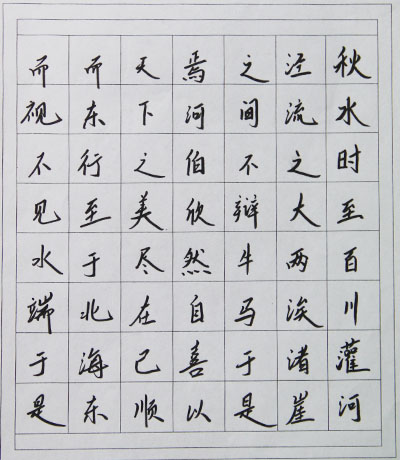 秋水时至百川灌河
泾流之大两涘渚崖
之间不辩牛马于是
焉河伯欣然自喜以
天下之美尽在己顺
而东行至于北海东
而视不见水端于是